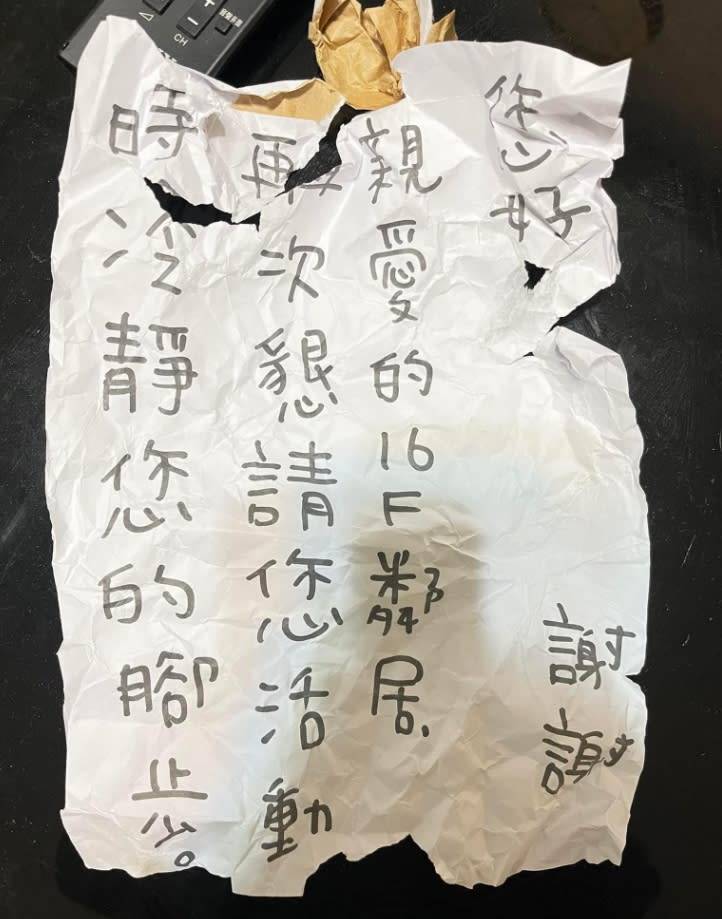 您好
親愛的16F鄰居,
再次懇請您活動
時冷靜您的腳步。
謝謝
CH